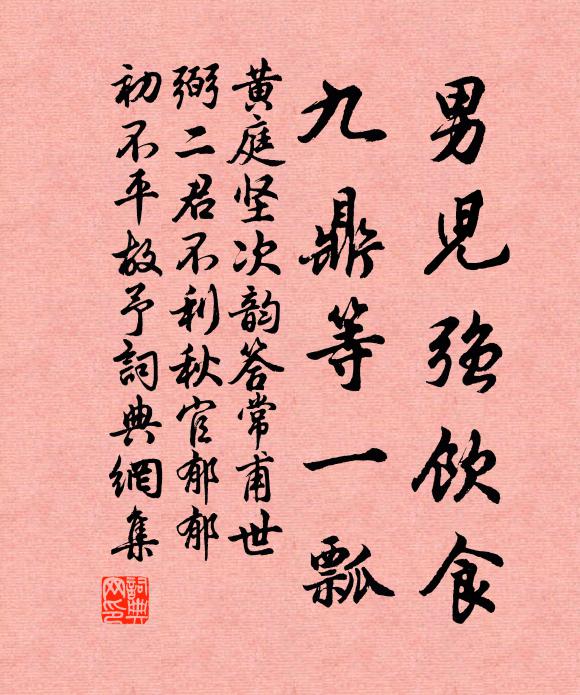 男兒強飲食
九鼎等一瓢
黄庭坚次韵答常甫世
弼二君不利秋官郁郁
初不平故予詞典網集
詞典网印